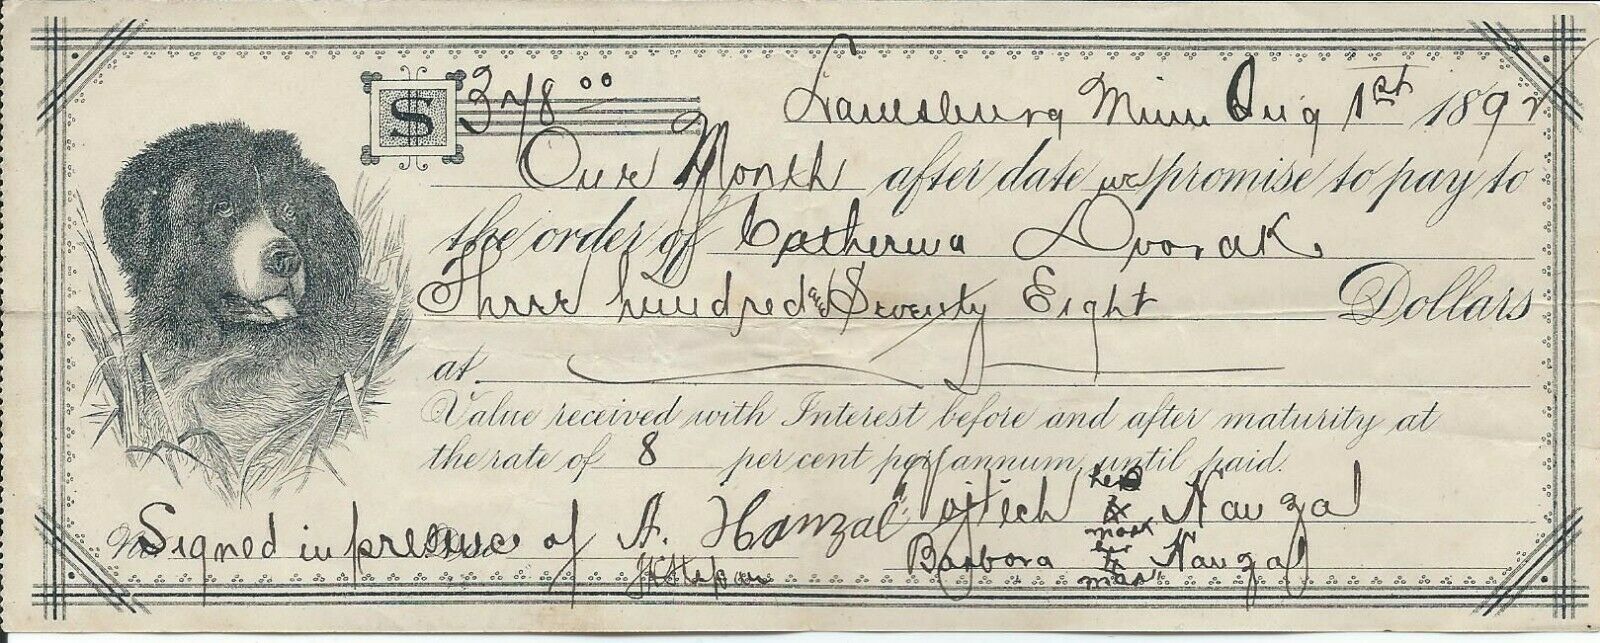 $ 378 00 Lanesburg Minn Aug 1st 1892
One Month after date we promise to pay to
the order of Catherina Dvorak
Three hundred and Seventy Eight Dollars
at
Value received with Interest before and after maturity at
the rate of 8 per cent per annum until paid.
Signed in presence of A. Hanzal Vojtech his x mark Hanzal
Barbora her x mark Hanzal